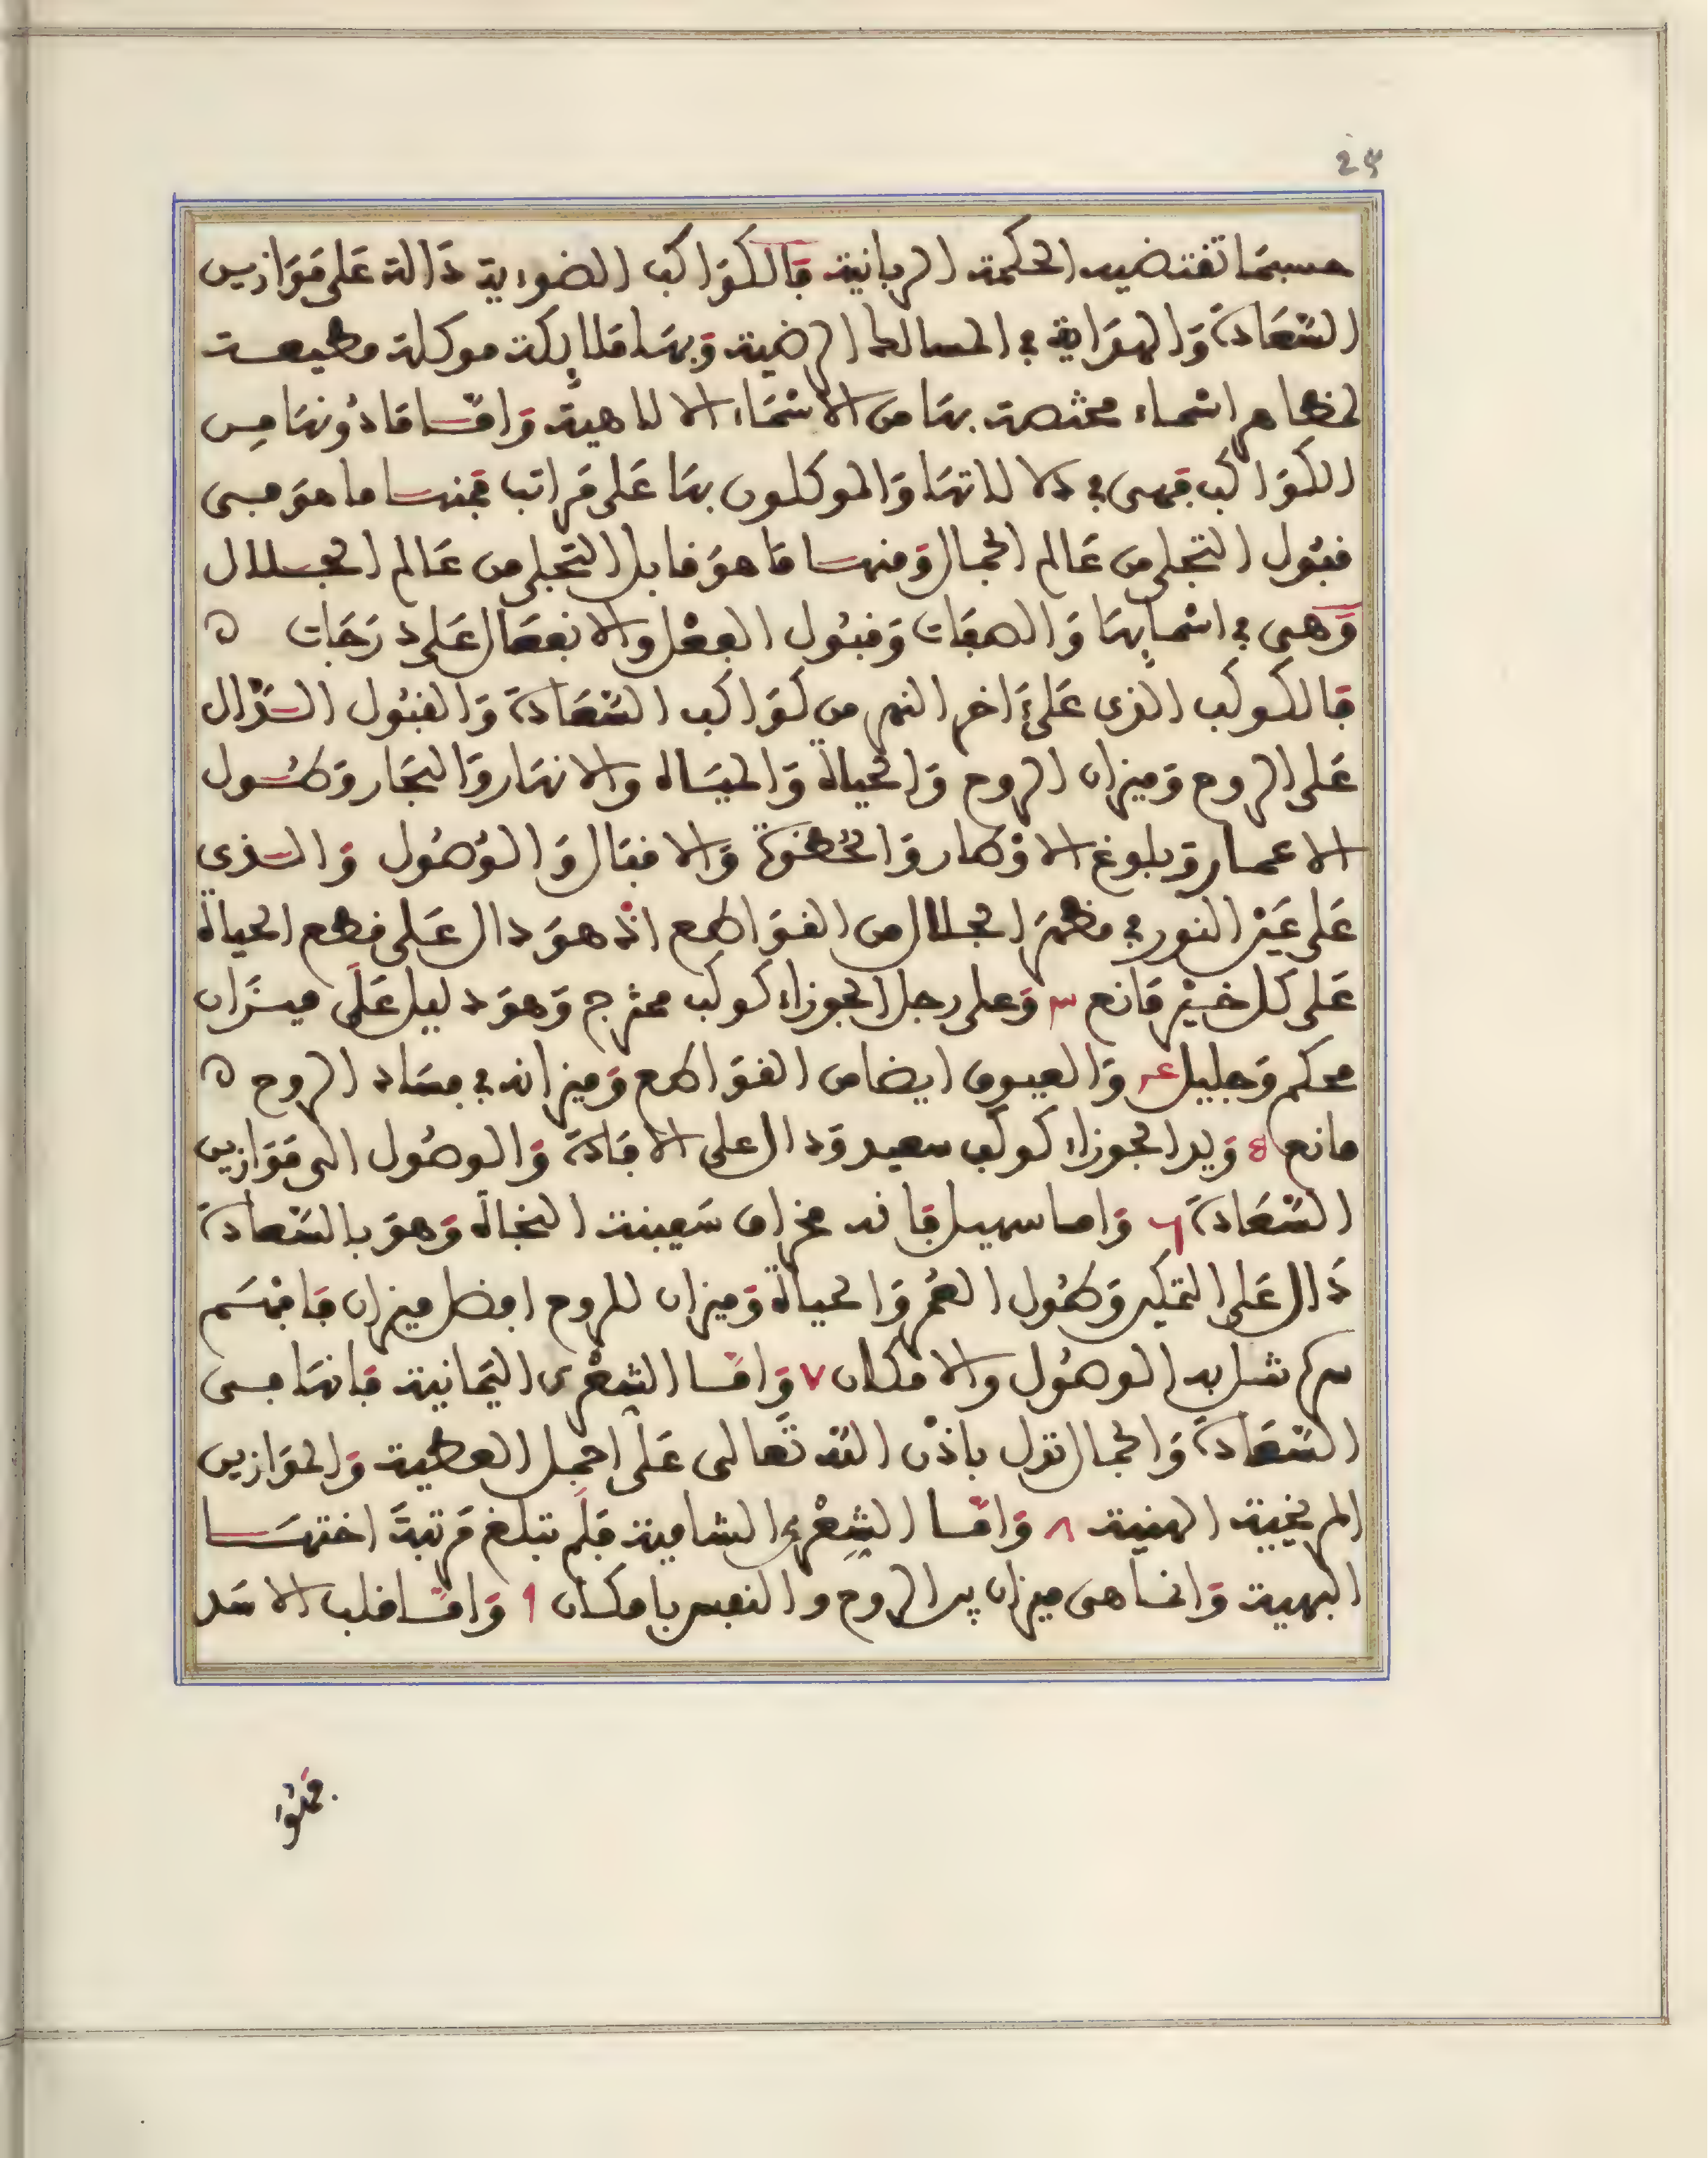 25
حسبما تقتضيه الحكمة الربانية فالكواكب الضورية دالة على موازين
السعادة والهداية في المسالك الرضية وبها ملائكة موكلة مطيعة
اسماء مختصة بها من الاسماء الالاهية واما ما دونها من
الكواكب فهي في دلالاتها والموكلون بها على مراتب فمنها ما هو في
قبول التجلي من عالم الجمال ومنها ما هو قابل التجلي من عالم الجلال
وهي في اسمايها والصفات وقبول الفعل والانفعال على درجات ه
فالكوكب الذي على ءاخر النهر من كواكب السعادة والقبول الدال
على الروح وميزان الروح والحياة والمياه والانهار والبحار وطول
الاعمار وبلوغ الاوطار والحظوة والاقبال والوصول والذي
على عين الثور في مظهر الجلال من القواطع اذ هو دال على قطع الحياة
على كل خير مانع ٣ وعلى رجل الجوزاء كوكب ممتزج وهو دليل على ميزان
محكم وجليل ٤ والعيوق ايضا من القواطع وميزانه في فساد الروح ه
مانع 5 ويد الجوزاء كوكب سعيد ودال على الافادة والوصول الى موازين
السعادة ٦ واما سهيل فانه مخزان سفينة النجاة وهو بالسعادة
دال على التمكين وطول العمر والحياة وميزان للروح افضل ميزان فافهم
سر به الوصول والامكان ٧ واما الشعرى اليمانية فانها من
السعادة والجمال تدل باذن الله تعالى على اجمل العطية والموازين
المريخية الهنية ٨ واما الشعرى الشامية فلم تبلغ مرتبة اختها
البهية وانما هي ميزان بين الروح والنفس بامكان ٩ واما قلب الاسد